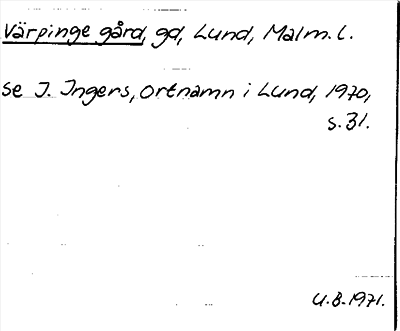 Värpinge gård, gd, Lund, Malm. l.
se J. Ingers, Ortnamn i Lund, 1970,
s. 31.
U.B. 1971.